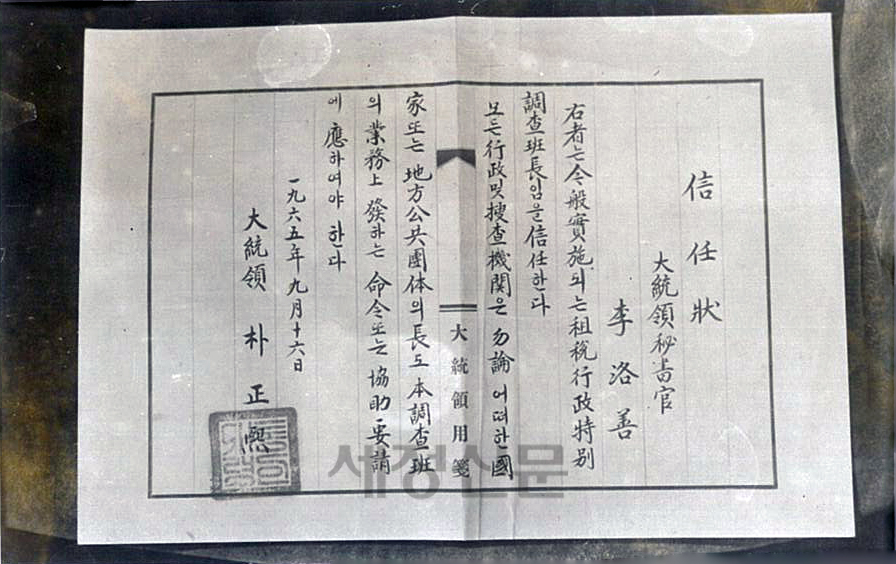 信任狀
大統領秘書官
李洛善
右者는 今般實施되는 租稅行政特別
調査班長임을 信任한다
모든 行政및 搜査機関은 勿論 어떠한 國
大統領用箋
家또는 地方公共團体의 長도 本調査班
의 業務上 發하는 命令또는 協助要請
에 應하여야 한다
一九六五年九月十六日
大統領 朴正熙
세정신문